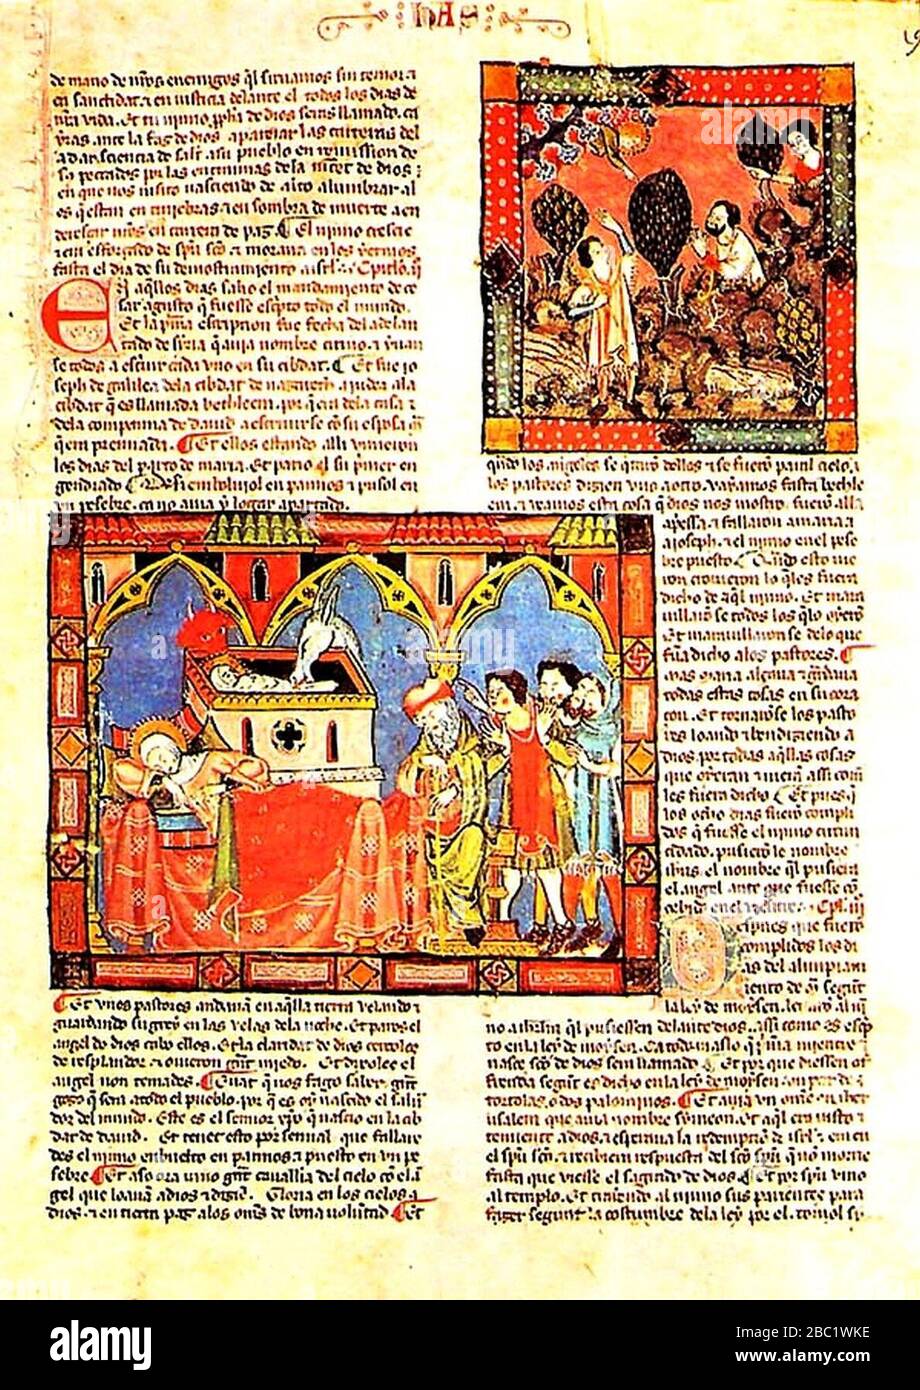 de mano de nr̃os enemigos q̃l siruamos sin temor ⁊
en sanctidat ⁊ en iusticia delante el todos los dias de
nr̃a vida. Et tu nino, ppħa de dios seras llamado. ca
yras ante la faz de dios. apareiar las carreras del
a dar sciencia de salut a su pueblo en remission de
sos pecados
en que nos uisito nasciendo de alto alumbrar al
os q̃ estan en tiniebras ⁊ en sombra de muerte ⁊ en
dereçar nr̃os en carrera de paz. El nino crescie
⁊ era esforçado de spũ sc̃o ⁊ moraua en los yermos
fasta el dia de su demostramiento a isrl.
En aq̃llos dias salio el mandamiento de ce
sar agusto q̃ fuesse escripto todo el mundo.
Et la pm̃a escription fue fecha del adelan
tado de syria q̃ auia nombre cirino. ⁊ yuan
se todos a escriuir cada uno en su cibdat. Et fue io
seph de galilea dela cibdat de nazareth a iudea ala
cibdat q̃ es llamada bethleem. por q̃ era dela casa ⁊
dela companna de dauid a escriuirse cõ su esposa m̃
q̃ era prennada. Et ellos estando alli uinieron
los dias del parto de maria. Et pario el su primer en
gendrado. en pannos ⁊ pusol en
un pesebre. ca no auia y logar apartado.
Et unos pastores andauã en aq̃lla tierra velando ⁊
guardando su grey en las velas dela noche. Et paros el
angel de dios cabo ellos. Et la claridat de dios cercolos
de resplandor ⁊ ouieron grãt miedo. Et dixoles el
angel non temades. Euat q̃ uos fago saber grãt
gozo q̃ sera a todo el pueblo. por q̃ es oy nascido el salua
dor del mundo. Este es el sennor que nascio en la cib
dat de dauid. Et tenet esto por sennal que fallare
des el nino enbuelto en pannos ⁊ puesto en un pe
sebre. Et a so ora uino grãt caualleria del cielo cõ el an
gel que loauan a dios ⁊ dizien. Gloria en los cielos a
dios. ⁊ en tierra paz alos om̃s de bona voluntad. Et
quãdo los angeles se q̃taron dellos ⁊ se fuerõ pora el cielo. ⁊
los pastores dizien uno a otro. vayamos fasta bethle
em. ⁊ veamos esta cosa q̃ dios nos mostro. fuerõ alla
apessa. ⁊ fallaron a maria ⁊
a ioseph. ⁊ el nino en el pese
bre puesto. Quãdo esto uie
ron conoscieron lo q̃ les fuera
dicho de aq̃l nino. Et mara
uillarõ se todos los q̃ lo oyerõ
Et marauillauan se delo que
fuera dicho alos pastores.
mas maria
todas estas cosas en su cora
çon. Et tornarõse los pasto
res loando ⁊ bendiziendo a
dios por todas aq̃llas cosas
que oyeran ⁊ uieran assi como
les fuera dicho. Et pues q̃
los ocho dias fuerõ compli
dos q̃ fuesse el nino circun
cidado. pusierõ le nombre
ihus. el nombre q̃l pusiera
el angel ante que fuesse cõ
cebido en el uientre.
Despues que fuerõ
complidos los di
as del alimpiam
iento de m̃ segũt
la ley de moysen. leuarõ al ni
no a ihrlm q̃l pusiessen delante dios. assi como es esc̃pto
en la ley de moysen. Ca todo maslo q̃ pm̃a mientre
nasce sc̃o de dios sera llamado. Et por que diessen of
frenda segũt es dicho en la ley de moysen. un par de
tortolas. o dos palominos. Et auia un ome en iheru
usalem que auia nombre symeon. Et aq̃l era iusto ⁊
temiente a dios. ⁊ esperaua la redemption de isrl. ⁊ era en
el spũ sc̃o. ⁊ recibiera respuesta del sc̃o spũ q̃ no morrie
fasta que uiesse el sagrado de dios. Et por spũ uino
al templo. Et trayendo al nino sus parientes para
fazer segunt la costumbre dela ley por el. tomol sy
alamy
Image ID: 2BC1WKE
www.alamy.com